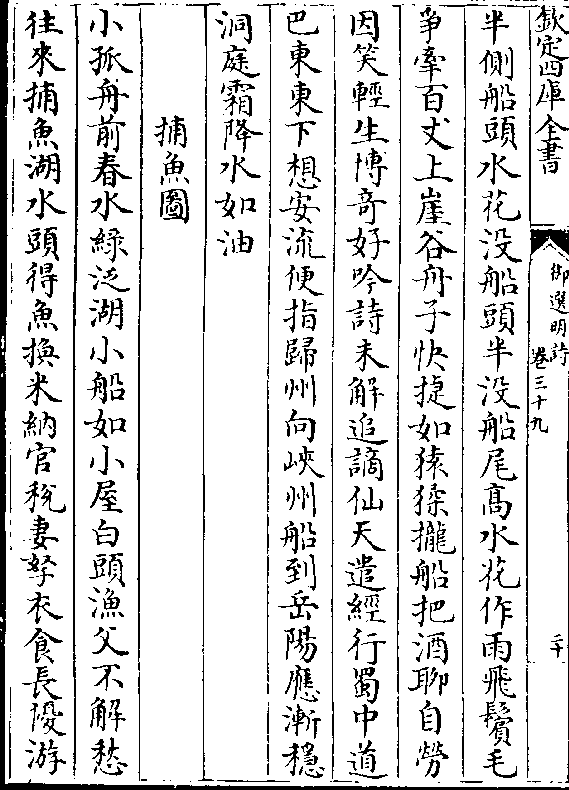 欽定四庫全書
御選明詩
卷三十九
二十
半側船頭水花没船頭半没船尾高水花作雨飛鬢毛
爭牽百丈上崖谷舟子快捷如猿猱攏船把酒聊自勞
因笑輕生博奇好吟詩未解追謫仙天遣經行蜀中道
巴東東下想安流便指歸州向峽州船到岳陽應漸穩
洞庭霜降水如油
捕魚圖
小孤舟前春水緑泛湖小船如小屋白頭漁父不解愁
往來捕魚湖水頭得魚換米納官稅妻孥衣食長優游